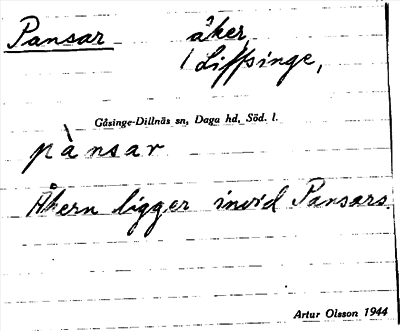 Pansar åker
/ Liffsinge,
Gåsinge-Dillnäs sn, Daga hd, Söd. l.
pànsar
Åkern ligger invid Pansars
Artur Olsson 1944